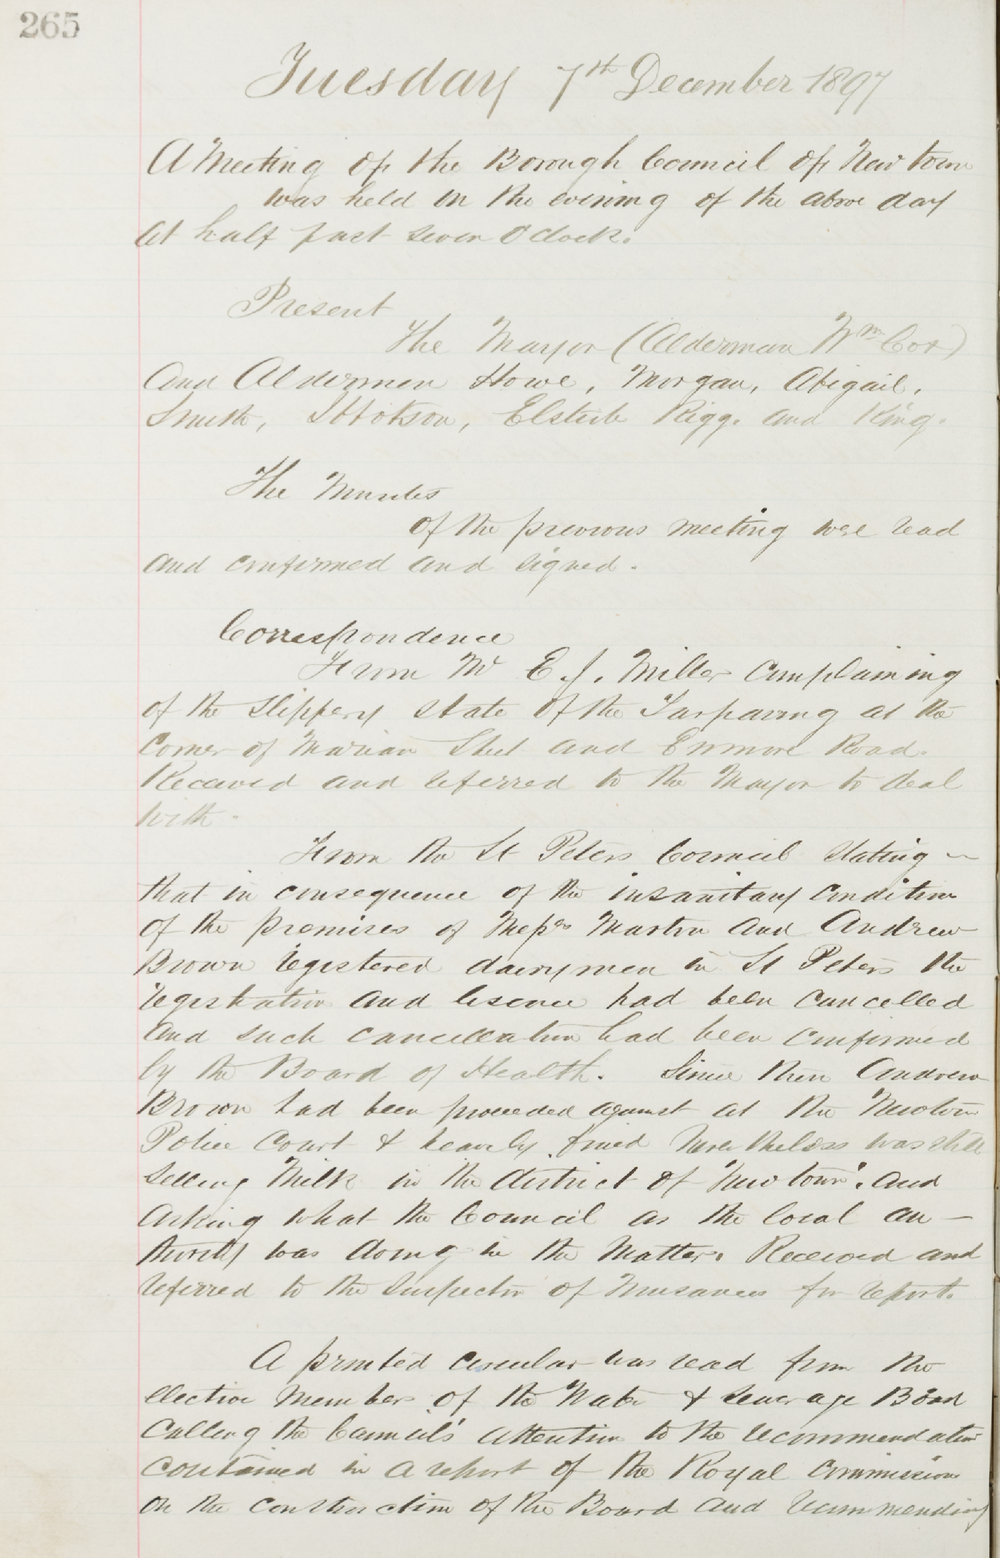 265
Tuesday 7th December 1897
A Meeting of the Borough Council of Newtown
was held on the evening of the above day
at half past seven O'Clock.
Present
The Mayor (Alderman Wm Cox)
and Aldermen Howe, Morgan, Abigail,
Smith, Ibbotson, Elstub Rigg. and King.
The Minutes
of the previous meeting were read
and confirmed and signed.
Correspondence
From Mr E. J. Miller complaining
of the slippery state of the Tarpaving at the
corner of Marian Street and Enmore Road.
Received and referred to the Mayor to deal
with.
From the St Peters Council stating
that in consequence of the insanitary condition
of the premises of Messrs Martin and Andrew
Brown registered dairymen in St Peters the
registration and liscence had been cancelled
and such cancellation had been confirmed
by the Board of Health. Since then Andrew
Brown had been proceeded against at the Newtown
Police Court & heavily fined nevertheless was still
selling Milk in the district of Newtown. and
asking what the Council as the local au-
thority was doing in the Matter. Received and
referred to the Inspector of Nuisances for report.
A printed circular was read from the
elective Member of the Water & Sewerage Board
calling the Council's attention to the recommendation
contained in a report of the Royal Commission
on the construction of the Board and recommending